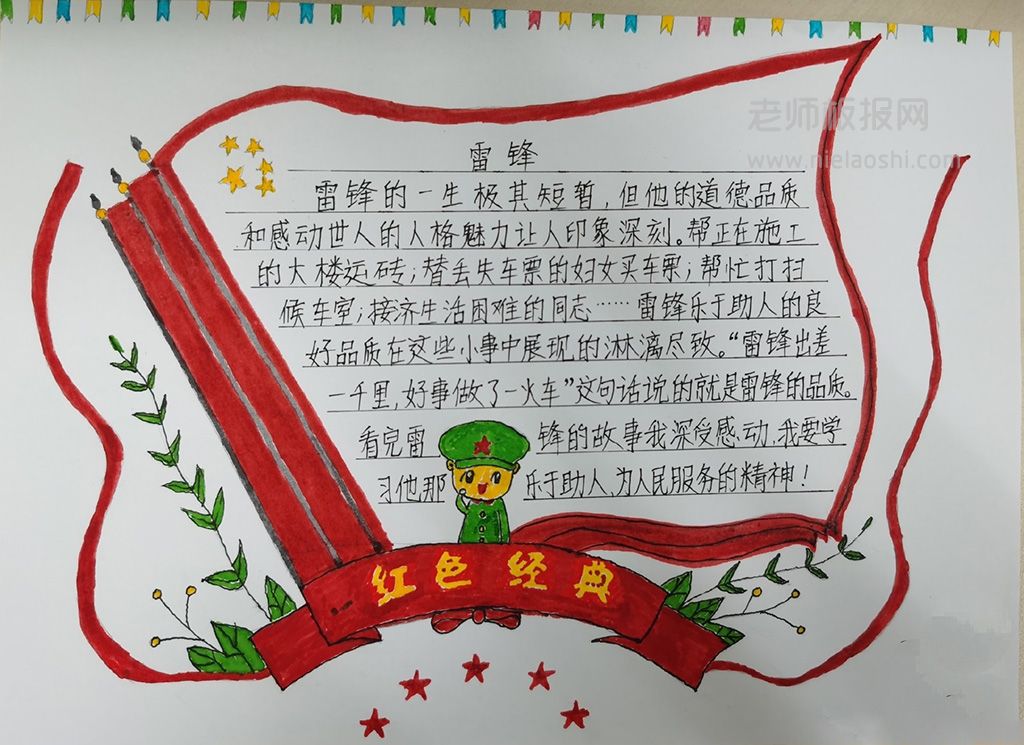 老师板报网
www.nielaoshi.com
雷锋
雷锋的一生极其短暂,但他的道德品质
和感动世人的人格魅力让人印象深刻。帮正在施工
的大楼运砖;替丢失车票的妇女买车票;帮忙打扫
候车室;接济生活困难的同志……雷锋乐于助人的良
好品质在这些小事中展现的淋漓尽致。“雷锋出差
一千里,好事做了一火车”这句话说的就是雷锋的品质。
看完雷锋的故事我深受感动,我要学
习他那乐于助人,为人民服务的精神!
红色经典